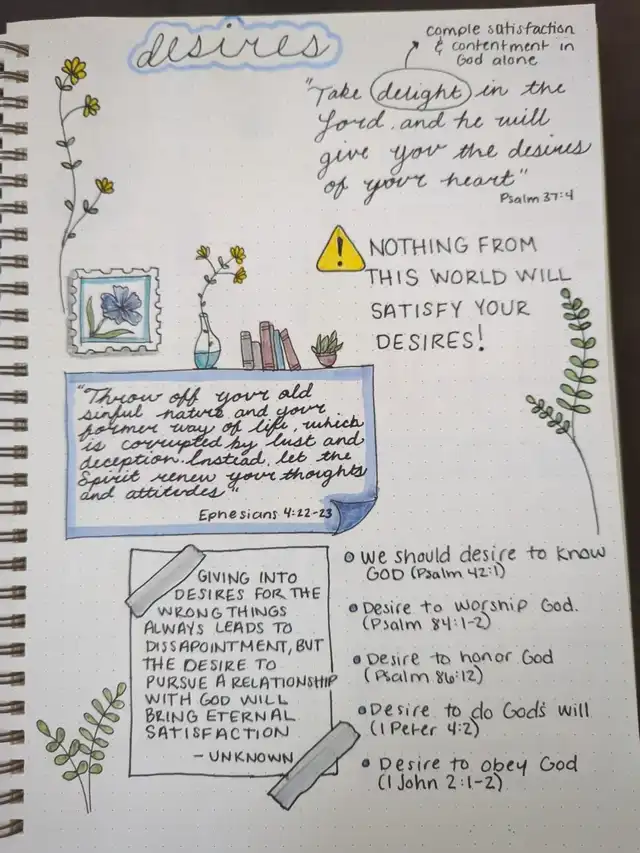 desires
comple satisfaction
& contentment in
God alone
"Take delight in the
Lord, and he will
give you the desires
of your heart"
Psalm 37:4
NOTHING FROM
THIS WORLD WILL
SATISFY YOUR
DESIRES!
"Throw off your old
sinful nature and your
former way of life, which
is corrupted by lust and
deception. Instead, let the
Spirit renew your thoughts
and attitudes"
Ephesians 4:22-23
GIVING INTO
DESIRES FOR THE
WRONG THINGS
ALWAYS LEADS TO
DISSAPOINTMENT, BUT
THE DESIRE TO
PURSUE A RELATIONSHIP
WITH GOD WILL
BRING ETERNAL
SATISFACTION
- UNKNOWN
• we should desire to know
GOD (Psalm 42:1)
• Desire to worship God.
(Psalm 84:1-2)
• Desire to honor God
(Psalm 86:12)
• Desire to do God's will
(1 Peter 4:2)
• Desire to obey God
(1 John 2:1-2)